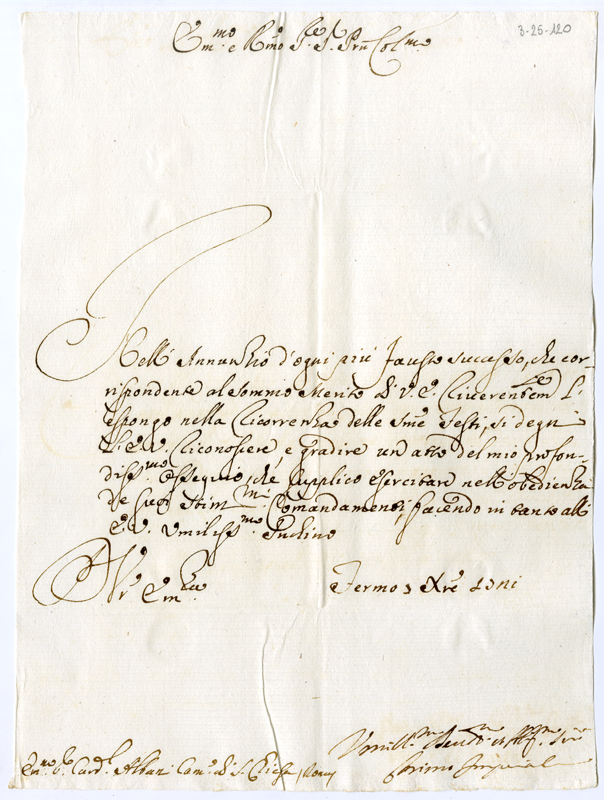 3-25-120
Em.mo e R.mo Sre. S. Prñ Col.mo
Nell' Annuntio d'ogni più fausto successo, che cor-
rispondente al sommo Merito di V. E. Riverentem.te L'
espongo nella Ricorrenza delle S.me Feste, si degni
L'E. V. Riconoscere, e gradire un atto del mio profon-
diss.mo ossequio, che supplico esercitare nell' obedienza
de suoi stim.mi Comandamenti, facendo in tanto all'
E. V. Umiliss.mo Inchino
Di Vr. Em.za
Fermo 3 Xre
Em.o S. Card.l Albani Cam.o di S. Chiesa, Roma
Umill.mo